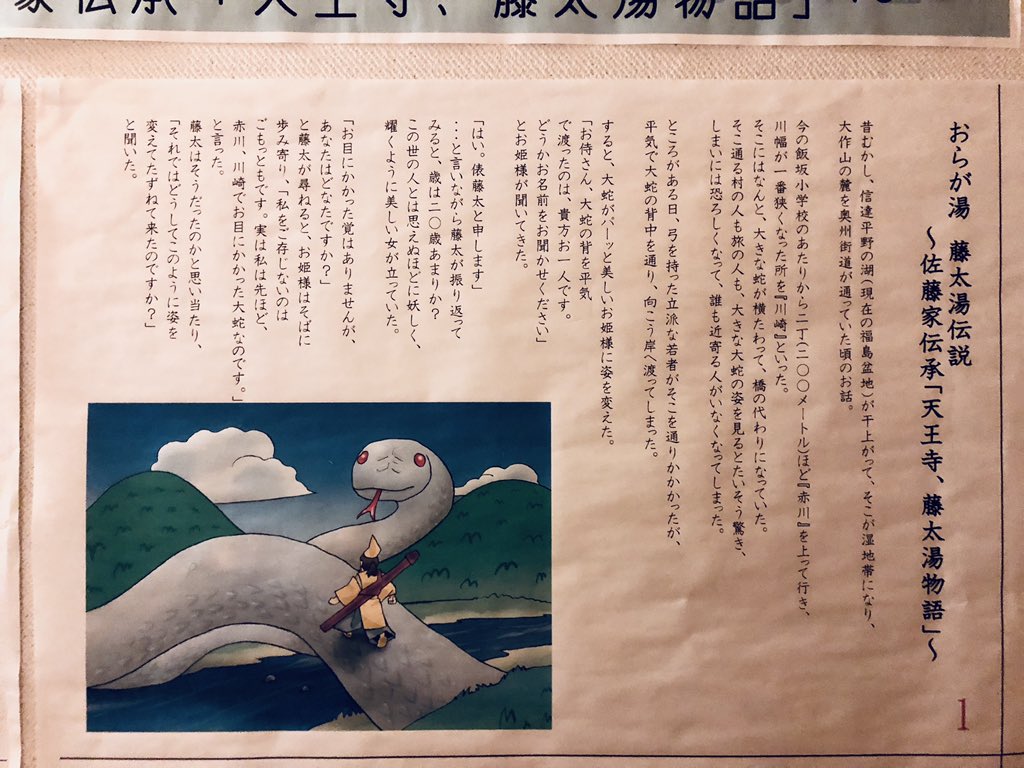 家伝承「天王寺、藤太湯物語」
おらが湯 藤太湯伝説
～佐藤家伝承「天王寺、藤太湯物語」～
昔むかし、信達平野の湖(現在の福島盆地)が干上がって、そこが湿地帯になり、
大作山の麓を奥州街道が通っていた頃のお話。
今の飯坂小学校のあたりから二丁(二〇〇メートル)ほど『赤川』を上って行き、
川幅が一番狭くなった所を『川崎』といった。
そこにはなんと、大きな蛇が横たわって、橋の代わりになっていた。
そこ通る村の人も旅の人も、大きな大蛇の姿を見るとたいそう驚き、
しまいには恐ろしくなって、誰も近寄る人がいなくなってしまった。
ところがある日、弓を持った立派な若者がそこを通りかかかったが、
平気で大蛇の背中を通り、向こう岸へ渡ってしまった。
すると、大蛇がパーッと美しいお姫様に姿を変えた。
「お侍さん、大蛇の背を平気
で渡ったのは、貴方お一人です。
どうかお名前をお聞かせください」
とお姫様が聞いてきた。
「はい。俵藤太と申します」
・・・と言いながら藤太が振り返って
みると、歳は二〇歳あまりか?
この世の人とは思えぬほどに妖しく、
耀くように美しい女が立っていた。
「お目にかかった覚はありませんが、
あなたはどなたですか?」
と藤太が尋ねると、お姫様はそばに
歩み寄り、「私をご存じないのは
ごもっともです。実は私は先ほど、
赤川、川崎でお目にかかった大蛇なのです。」
と言った。
藤太はそうだったのかと思い当たり、
「それではどうしてこのように姿を
変えてたずねて来たのですか?」
と聞いた。
1